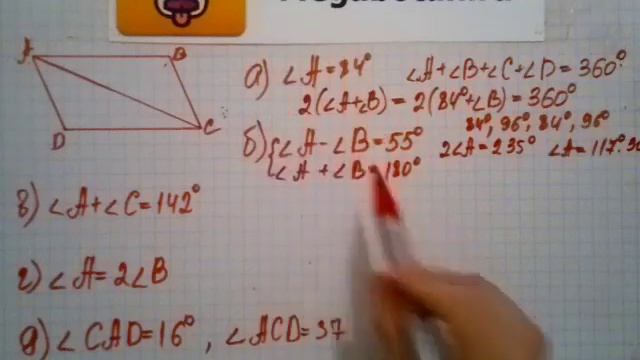 A B
D C
а) ∠A=84° ∠A+∠B+∠C+∠D=360°
2(∠A+∠B)=2(84°+∠B)=360°
84°, 96°, 84°, 96°
б) {∠A-∠B=55° 2∠A=235° ∠A=117°30
∠A+∠B=180°
в) ∠A+∠C=142°
г) ∠A=2∠B
д) ∠CAD=16°, ∠ACD=37